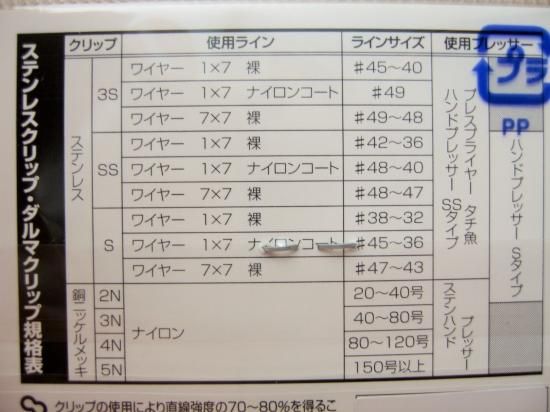 ステンレスクリップ・ダルマクリップ規格表
クリップ 使用ライン ラインサイズ 使用プレッサー
ステンレス
3S
ワイヤー 1×7 裸 #45〜40
ワイヤー 1×7 ナイロンコート #49
ワイヤー 7×7 裸 #49〜48
SS
ワイヤー 1×7 裸 #42〜36
ワイヤー 1×7 ナイロンコート #48〜40
ワイヤー 7×7 裸 #48〜47
S
ワイヤー 1×7 裸 #38〜32
ワイヤー 1×7 ナイロンコート #45〜36
ワイヤー 7×7 裸 #47〜43
プレスプライヤー タチ魚
ハンドプレッサー SSタイプ
ハンドプレッサー Sタイプ
銅ニッケルメッキ
2N 20〜40号
3N 40〜80号
4N 80〜120号
5N 150号以上
ナイロン
ステンハンド
プレッサー
プラ
PP
クリップの使用により直線強度の70〜80%を得るこ